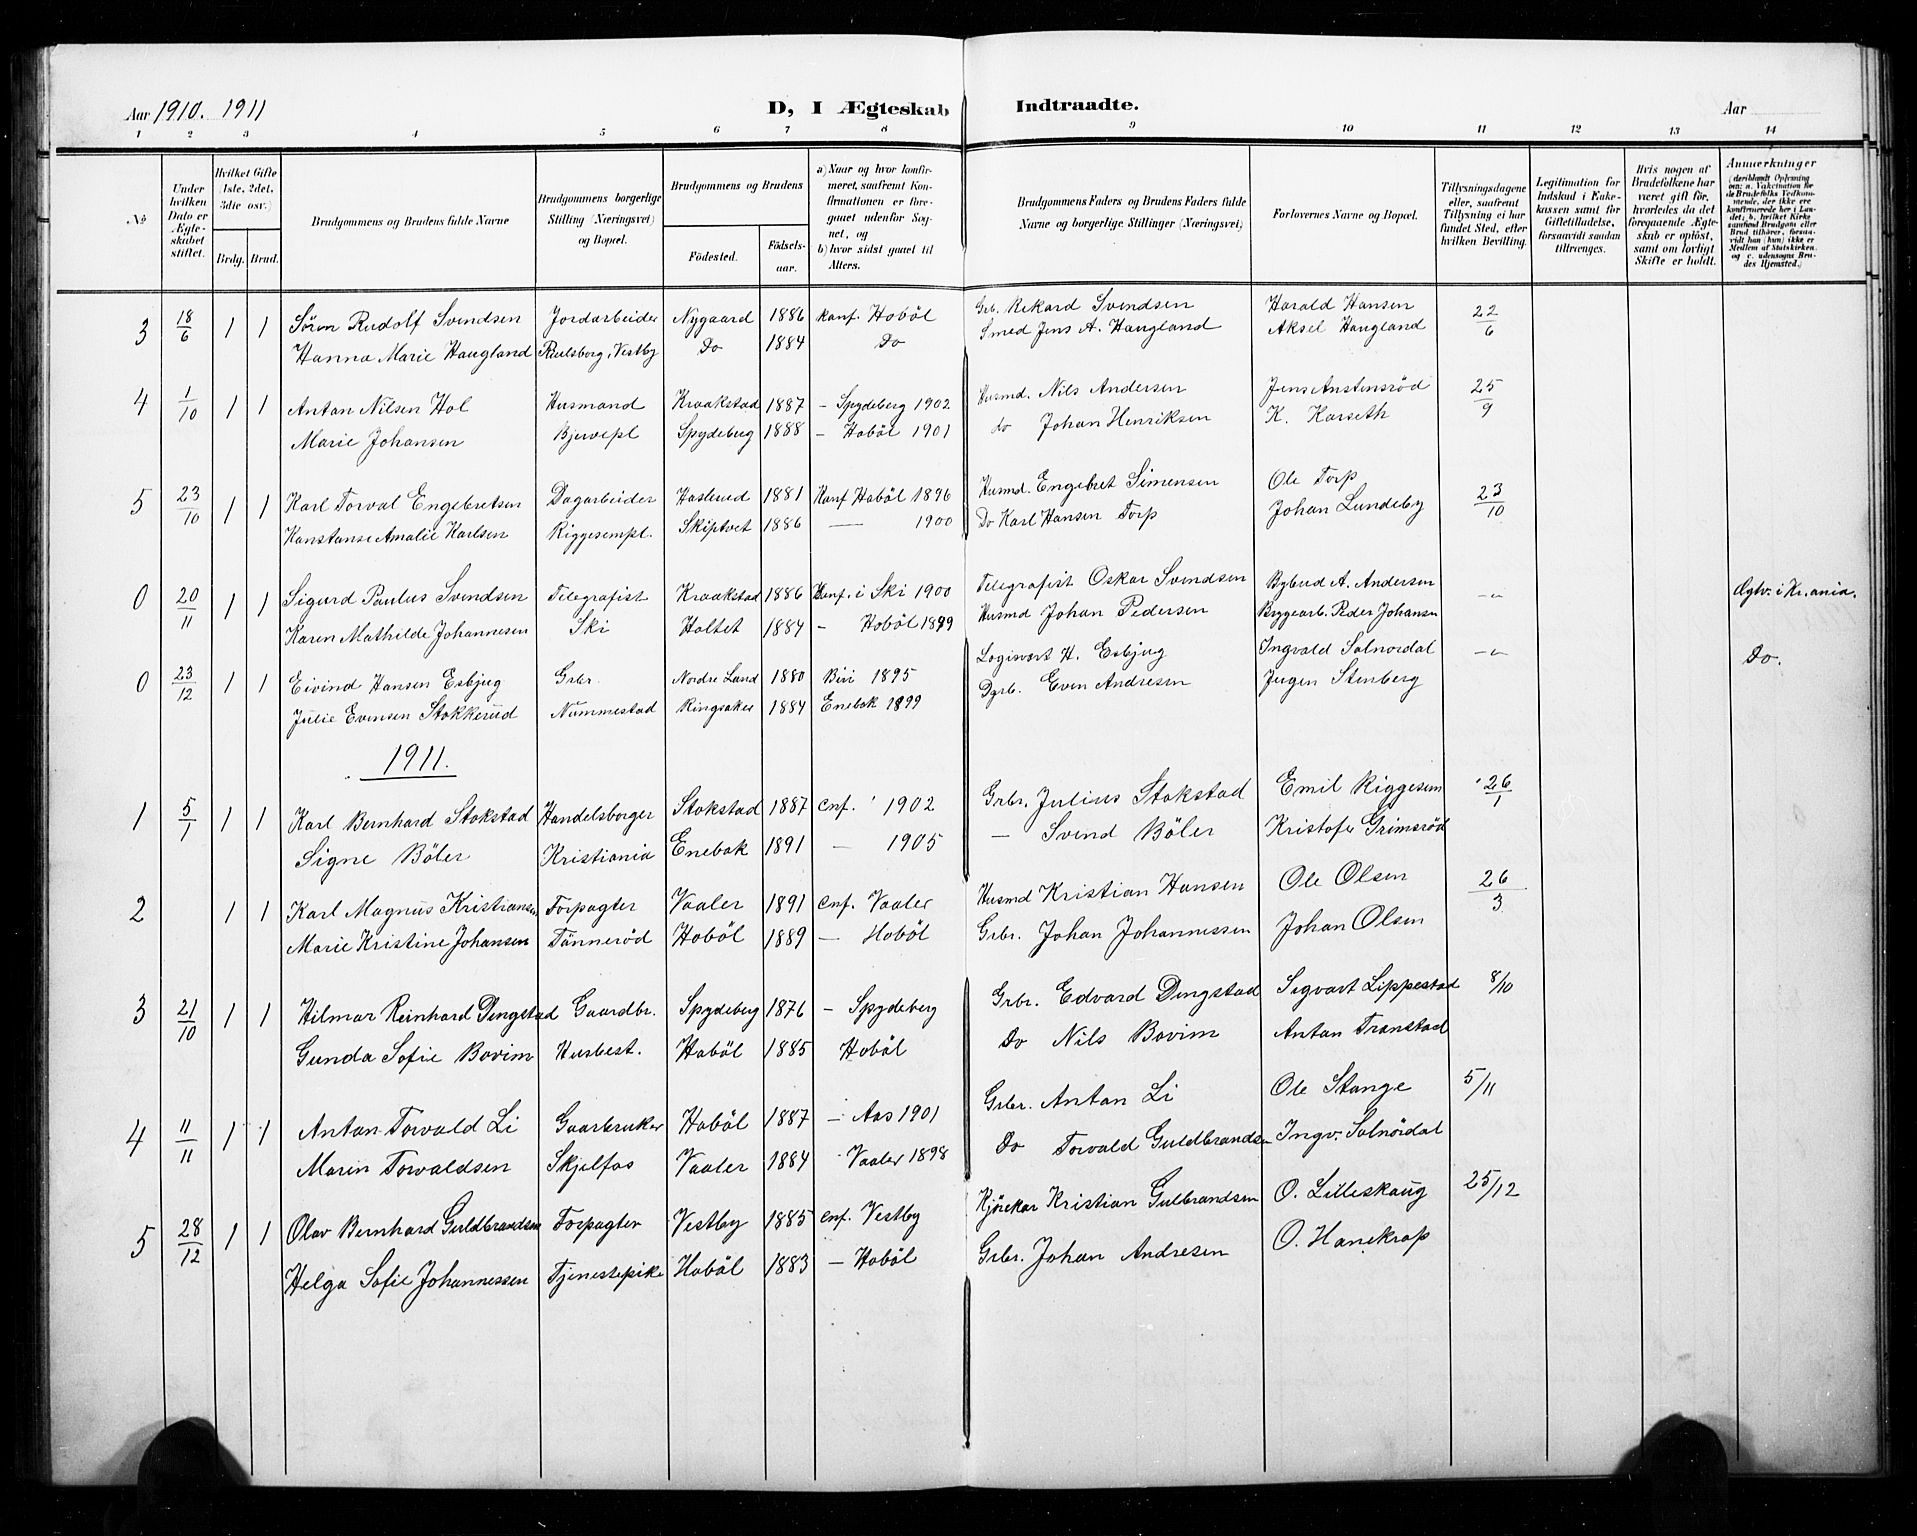 Aar 1910. 1911 D, I Ægteskab Indtraadte. Aar
1 2 3 4 5 6 7 8 9 10 11 12 13 14
№
Under hvilken Dato er Ægteskabet stiftet.
Hvilket Gifte (1ste, 2det, 3die osv.)
Brdg. Brud.
Brudgommens og Brudens fulde Navne
Brudgommens borgerlige Stilling (Næringsvei) og Bopæl.
Brudgommens og Brudens
Fødested. Fødselsaar.
a) Naar og hvor konfirmeret, saafremt Konfirmationen er foregaaet udenfor Sognet, og
b) hvor sidst gaaet til Alters.
Brudgommens Faders og Brudens Faders fulde Navne og borgerlige Stillinger (Næringsvei)
Forlovernes Navne og Bopæl.
Tillysningsdagene eller, saafremt Tillysning ei har fundet Sted, efter hvilken Bevilling.
Legitimation for Indskud i Enkekassen samt for Giftetilladelse, forsaavidt saadan tiltrænges.
Hvis nogen af Brudefolkene har været gift før, hvorledes da det foregaaende Ægteskab er opløst, samt om lovligt Skifte er holdt.
Anmerkninger (deriblandt Oplysning om: a. Vakcination for de Brudefolks Vedkommende, der ikke ere konfirmerede her i Landet; b. hvilket Kirkesamfund Brudgom eller Brud tilhører, forsaavidt han (hun) ikke er Medlem af Statskirken, og c. udensogns Brudes Hjemsted.)
3 18/6 1 1 Søren Rudolf Svendsen Jordarbeider Nygaard 1886 Konf. Hobøl Grb. Rikard Svendsen Harald Hansen 22/6
Hanna Marie Haugland Vestby Do 1884 Do Smed Jens A. Haugland Aksel Haugland
4 1/10 1 1 Anton Nilsen Hol Husmand Kraakstad 1887 – Spydeberg 1902 Husmd. Nils Andersen Jens Anstensrød 25/9
Marie Johansen Bjervepl Spydeberg 1888 – Hobøl 1901 do Johan Henriksen K. Karseth
5 23/10 1 1 Karl Torval Engebretsen Dagarbeider Haslerud 1881 Konf Hobøl 1896 Husmd. Engebret Simensen Ole Torp 23/10
Konstanse Amalie Karlsen Riggesempl. Skiptvet 1886 — 1900 Do Karl Hansen Torp Johan Lundeby
0 20/11 1 1 Sigurd Paulus Svendsen Telegrafist Kraakstad 1886 Konf. i Ski 1900 Telegrafist Oskar Svendsen Bybud A. Andersen –„– Ægtv. i Kr.ania.
Karen Mathilde Johannesen Ski Holtet 1884 – Hobøl 1899 Husmd Johan Pedersen Bygearb. Peder Johansen
0 23/12 1 1 Eivind Hansen Esbjug Grbr. Nordre Land 1880 Biri 1895 Logivert H. Esbjug Ingvald Solnørdal –„– Do.
Julie Evensen Stokkerud Nummestad Ringsaker 1884 Enebak 1899 Dgrb. Even Andresen Jugen Stenberg
1911.
1 5/1 1 1 Karl Bernhard Stokstad Handelsborger Stokstad 1887 Cnf. 1902 Grbr. Julius Stokstad Emil Riggesem 26/1
Signe Bøler Kristiania Enebak 1891 — 1905 — Svend Bøler Kristofer Grimsrød
2 1 1 Karl Magnus Kristiansen Forpagter Vaaler 1891 Cnf. Vaaler Husmd Kristian Hansen Ole Olsen 26/3
Marie Kristine Johansen Tønnerød Hobøl 1889 — Hobøl Grbr. Johan Johannessen Johan Olsen
3 21/10 1 1 Hilmar Reinhard Dingstad Gaardbr. Spydeberg 1876 – Spydeberg Grbr. Edvard Dingstad Sigvart Lippestad 8/10
Gunda Sofie Bovim Husbest. Hobøl 1885 Hobøl Do Nils Bovim Anton Transtad
4 11/11 1 1 Anton Torvald Li Gaarbruker Hobøl 1887 – Aas 1901 Grbr. Anton Li Ole Stange 5/11
Marin Torvaldsen Skjelfos Vaaler 1884 Vaaler 1898 Do Torvald Guldbrandsen Ingv. Solnørdal
5 28/12 1 1 Olav Bernhard Guldbrandsen Forpagter Vestby 1885 Cnf. Vestby Kjørekar Kristian Gulbrandsen O. Lilleskaug 25/12
Helga Sofie Johannessen Tjenestepike Hobøl 1883 — Hobøl Grbr. Johan Andresen O. Hanekrop